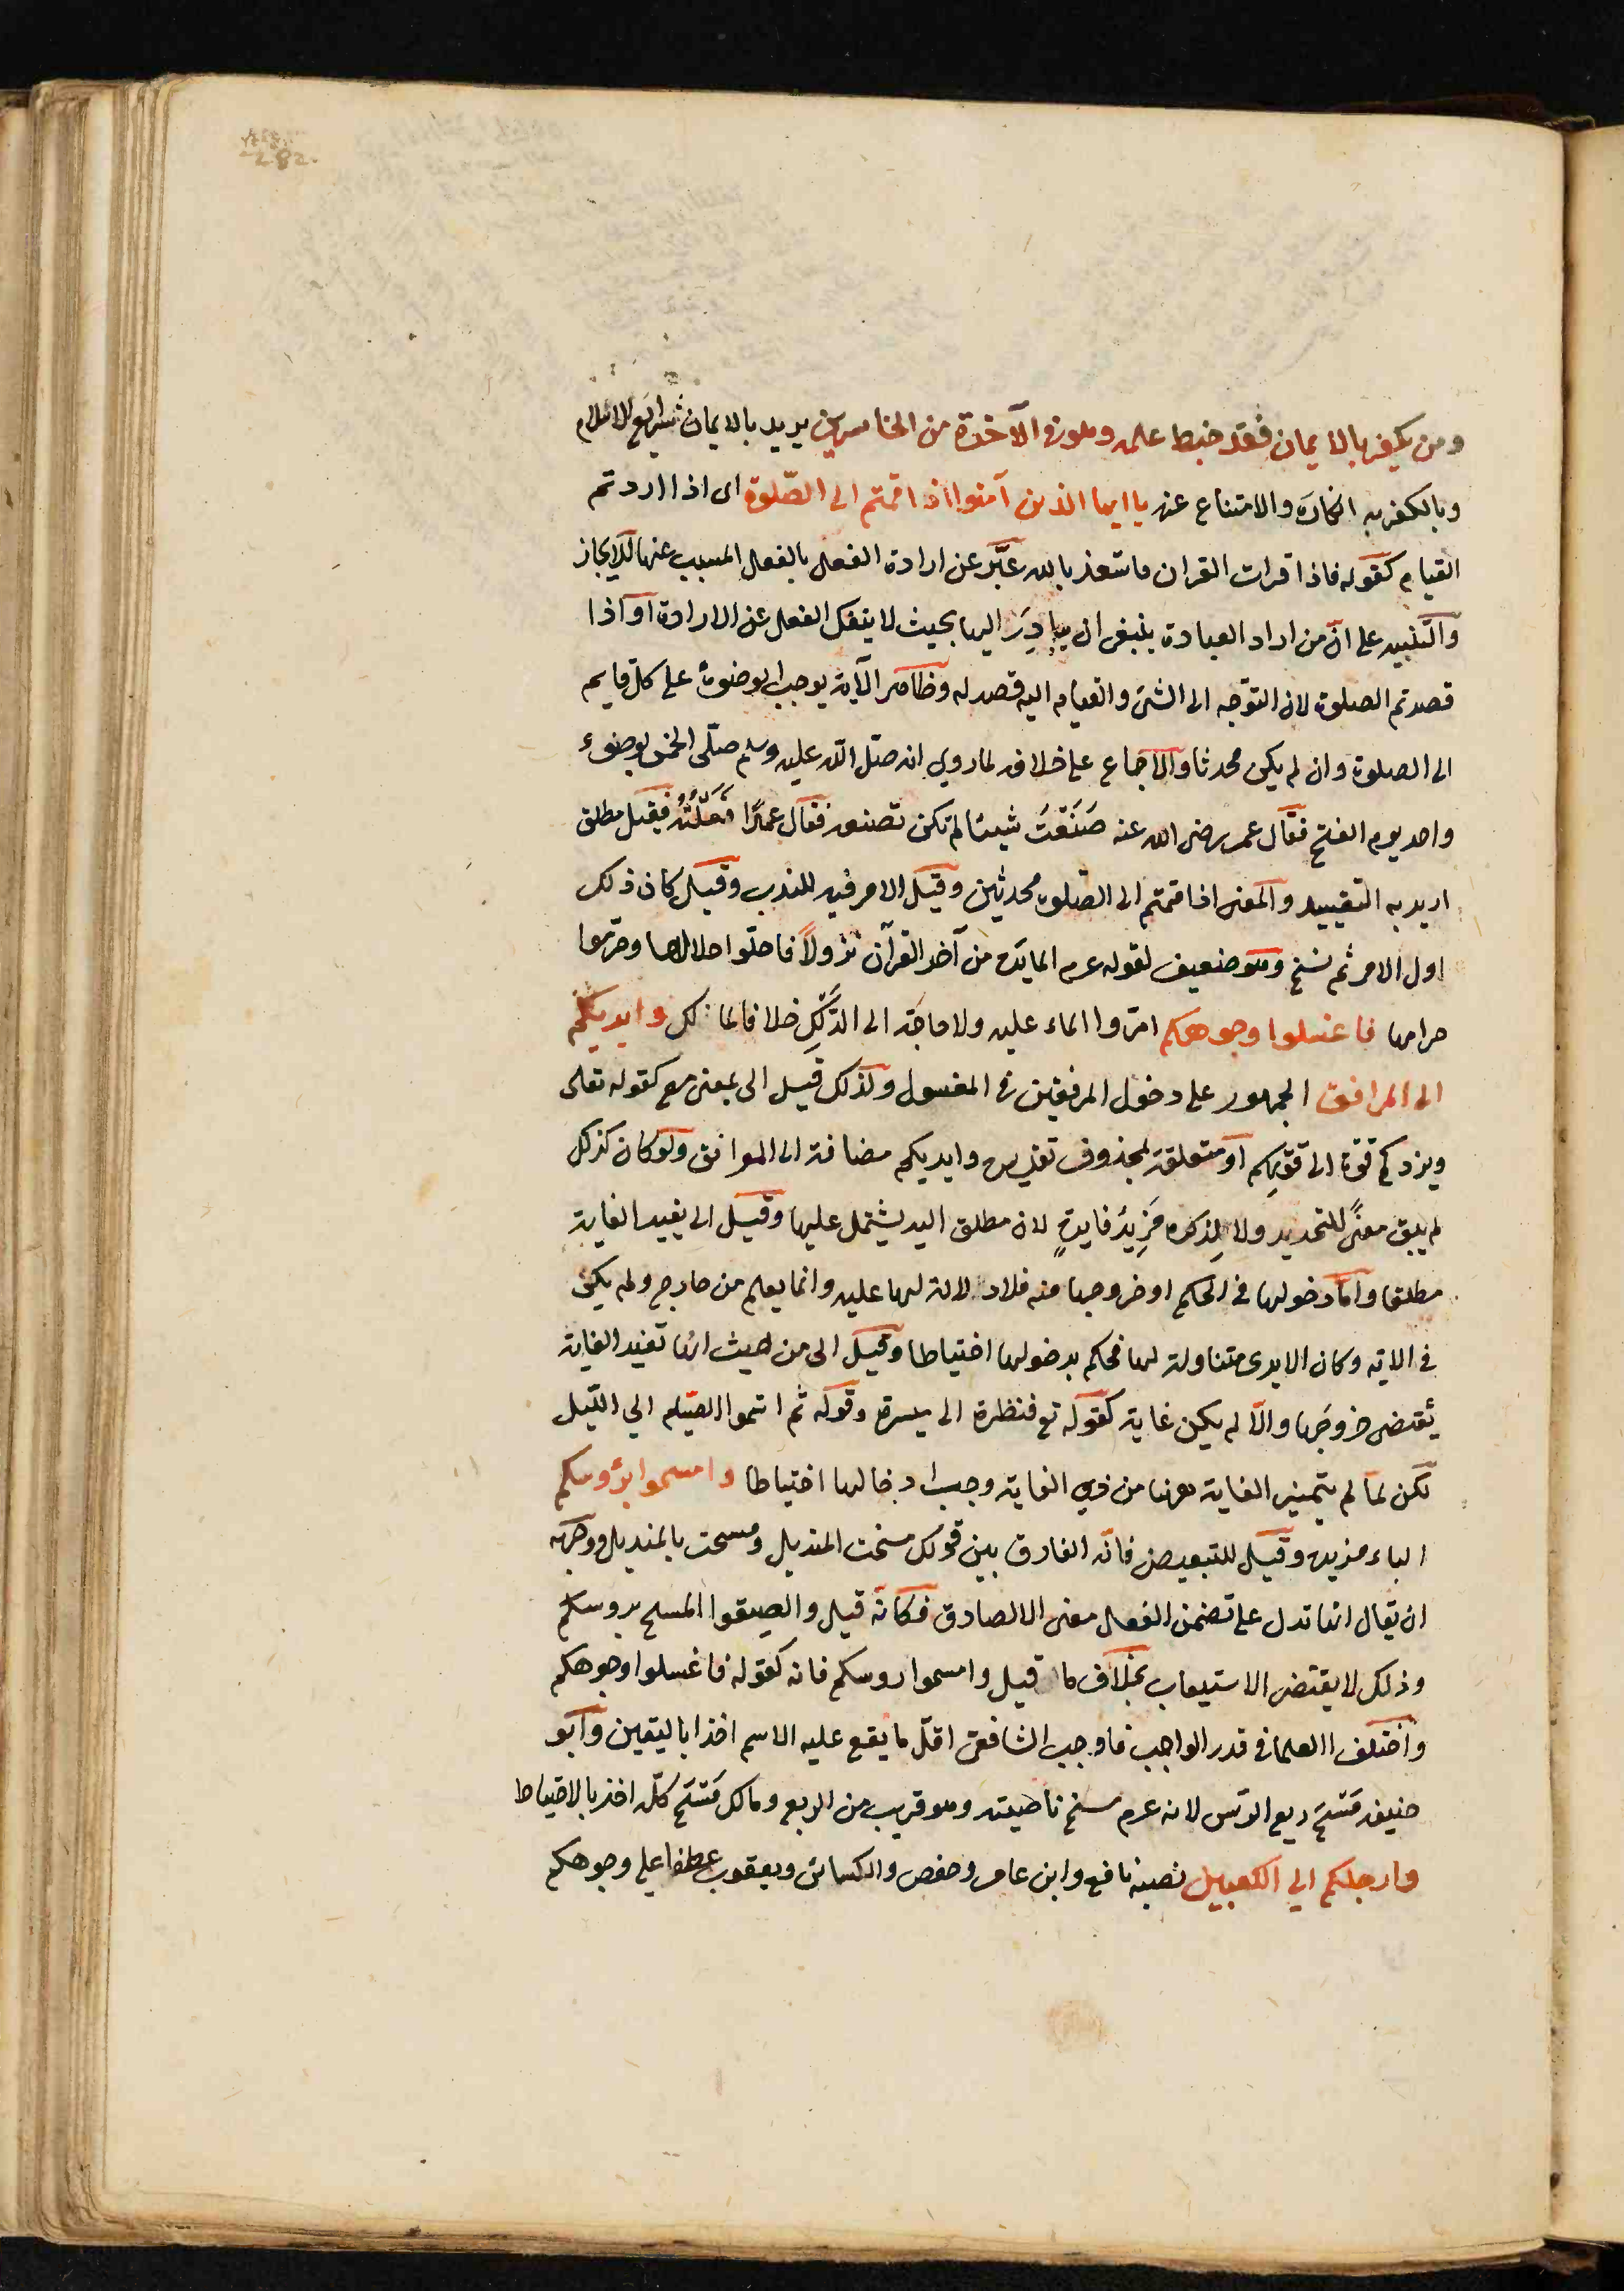 282
ومن يكفر بالايمان فقد حبط عمله وهو فى الآخرة من الخاسرين يريد بالايمان شرايع الاسلام
وبالكفر به انكاره والامتناع عنه ياايها الذين آمنوا اذا قمتم الى الصلوة اى اذا اردتم
القيام كقوله فاذا قرات القران فاستعذ بالله عبَّر عن ارادة الفعل بالفعل المسبب عنها للايجاز
والتنبيه على انّ من اراد العبادة ينبغى ان يبادِرَ اليها بحيث لا ينفك الفعل عن الارادة او اذا
قصدتم الصلوة لان التوجّه الى الشئ والقيام اليه قصد له وظاهر الآية يوجب الوضوءَ على كل قايم
الى الصلوة وان لم يكن محدثا والاجماع على خلافه لما روي انه صلّى اللّه عليه وسلم صلّى الخمس بوضوء
واحد يوم الفتح فقال عمر رضى الله عنه صَنَعْتَ شيئا لم تكن تصنعه فقال عمدًا فَعَلْتُهُ فقيل مطلق
اريد به التقييد والمعنى اذا قمتم الى الصلوة محدثين وقيل الامر فيه للندب وقيل كان ذلك
اول الامر ثم نسخ وهو ضعيف لقوله عم المايدة من آخر القرآن نزولاً فاحلّوا حلالها وحرّموا
حرامها فاغسلوا وجوهكم امرّوا الماء عليه ولا حاجة الى الدَّلْكِ خلافا لمالك وايديكم
الى المرافق الجمهور على دخول المرفقين فى المغسول ولذلك قيل الى بمعنى مع كقوله تعلى
ويزدكم قوّة الى قوّتكم او متعلقة بمحذوف تقديره وايديكم مضافة الى المرافق ولو كان كذلك
لم يبق معنًى للتحديد ولا لِذكره مَزِيدُ فايدةٍ لان مطلق اليد يشتمل عليها وقيل الى يفيد الغاية
مطلقا وامّا دخولها فى الحكم او خروجها منه فلا دلالة لها عليه وانما يعلم من خارج ولم يكن
فى الاية وكان الايدى متناولة لها فحكم بدخولها احتياطا وقيل الى من حيث انها تفيد الغاية
يقتضى خروجَها والّا لم يكن غاية كقوله تع فنظرة الى ميسرة وقوله ثم اتموا الصيام الي اللّيل
لكن لمّا لم يتميز الغاية ههنا من ذي الغاية وجب ادخالها احتياطا وامسحوا برؤسكم
الباء مزيدة وقيل للتبعيض فانّه الفارق بين قولك مسحت المنديل ومسحت بالمنديل ووجهه
ان يقال انها تدل على تضمن الفعل معنى الالصاق فكانّه قيل والصقوا المسح بروسكم
وذلك لا يقتضى الاستيعاب بخلاف ما قيل وامسحوا روسكم فانه كقوله فاغسلوا وجوهكم
واختلف العلما فى قدر الواجب فاوجب الشافعى اقلّ ما يقع عليه الاسم اخذا باليقين وابو
حنيفة مَسْحَ ربع الرّاس لانه عم مسح ناصيته وهو قريب من الربع ومالك مَسْحَ كلّه اخذ بالاحتياط
وارجلكم الي الكعبين نصبه نافع وابن عامر وحفص والكسائى ويعقوب عطفا على وجوهكم